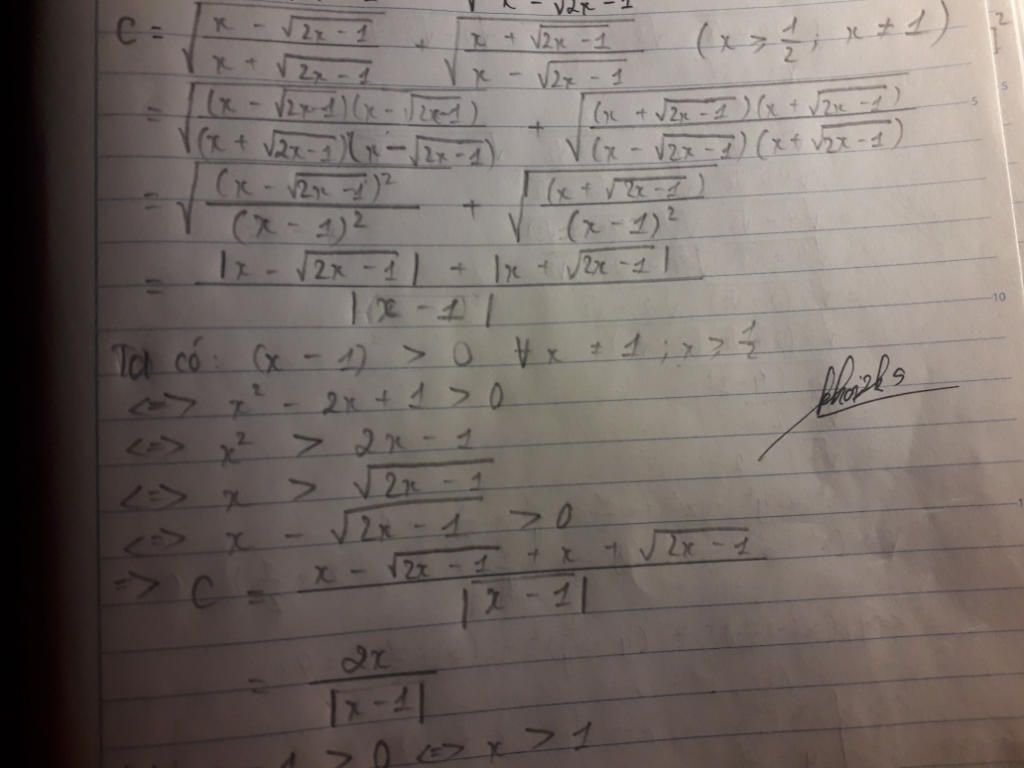 √x - √2x - 1
C = √(x - √2x - 1 / x + √2x - 1) + √(x + √2x - 1 / x - √2x - 1) (x ≥ 1/2 ; x ≠ 1)
= √((x - √2x-1)(x - √2x-1) / (x + √2x-1)(x - √2x-1)) + √((x + √2x-1)(x + √2x-1) / (x - √2x-1)(x + √2x-1))
= √((x - √2x-1)² / (x - 1)²) + √((x + √2x-1) / (x - 1)²)
= |x - √2x-1| + |x + √2x-1| / |x - 1|
Ta có: (x - 1) > 0 ∀x ≠ 1 ; x ≥ 1/2
<=> x² - 2x + 1 > 0
<=> x² > 2x - 1
<=> x > √2x - 1
<=> x - √2x - 1 > 0
=> C = x - √2x-1 + x + √2x-1 / |x - 1|
= 2x / |x - 1|
1 > 0 <=> x > 1